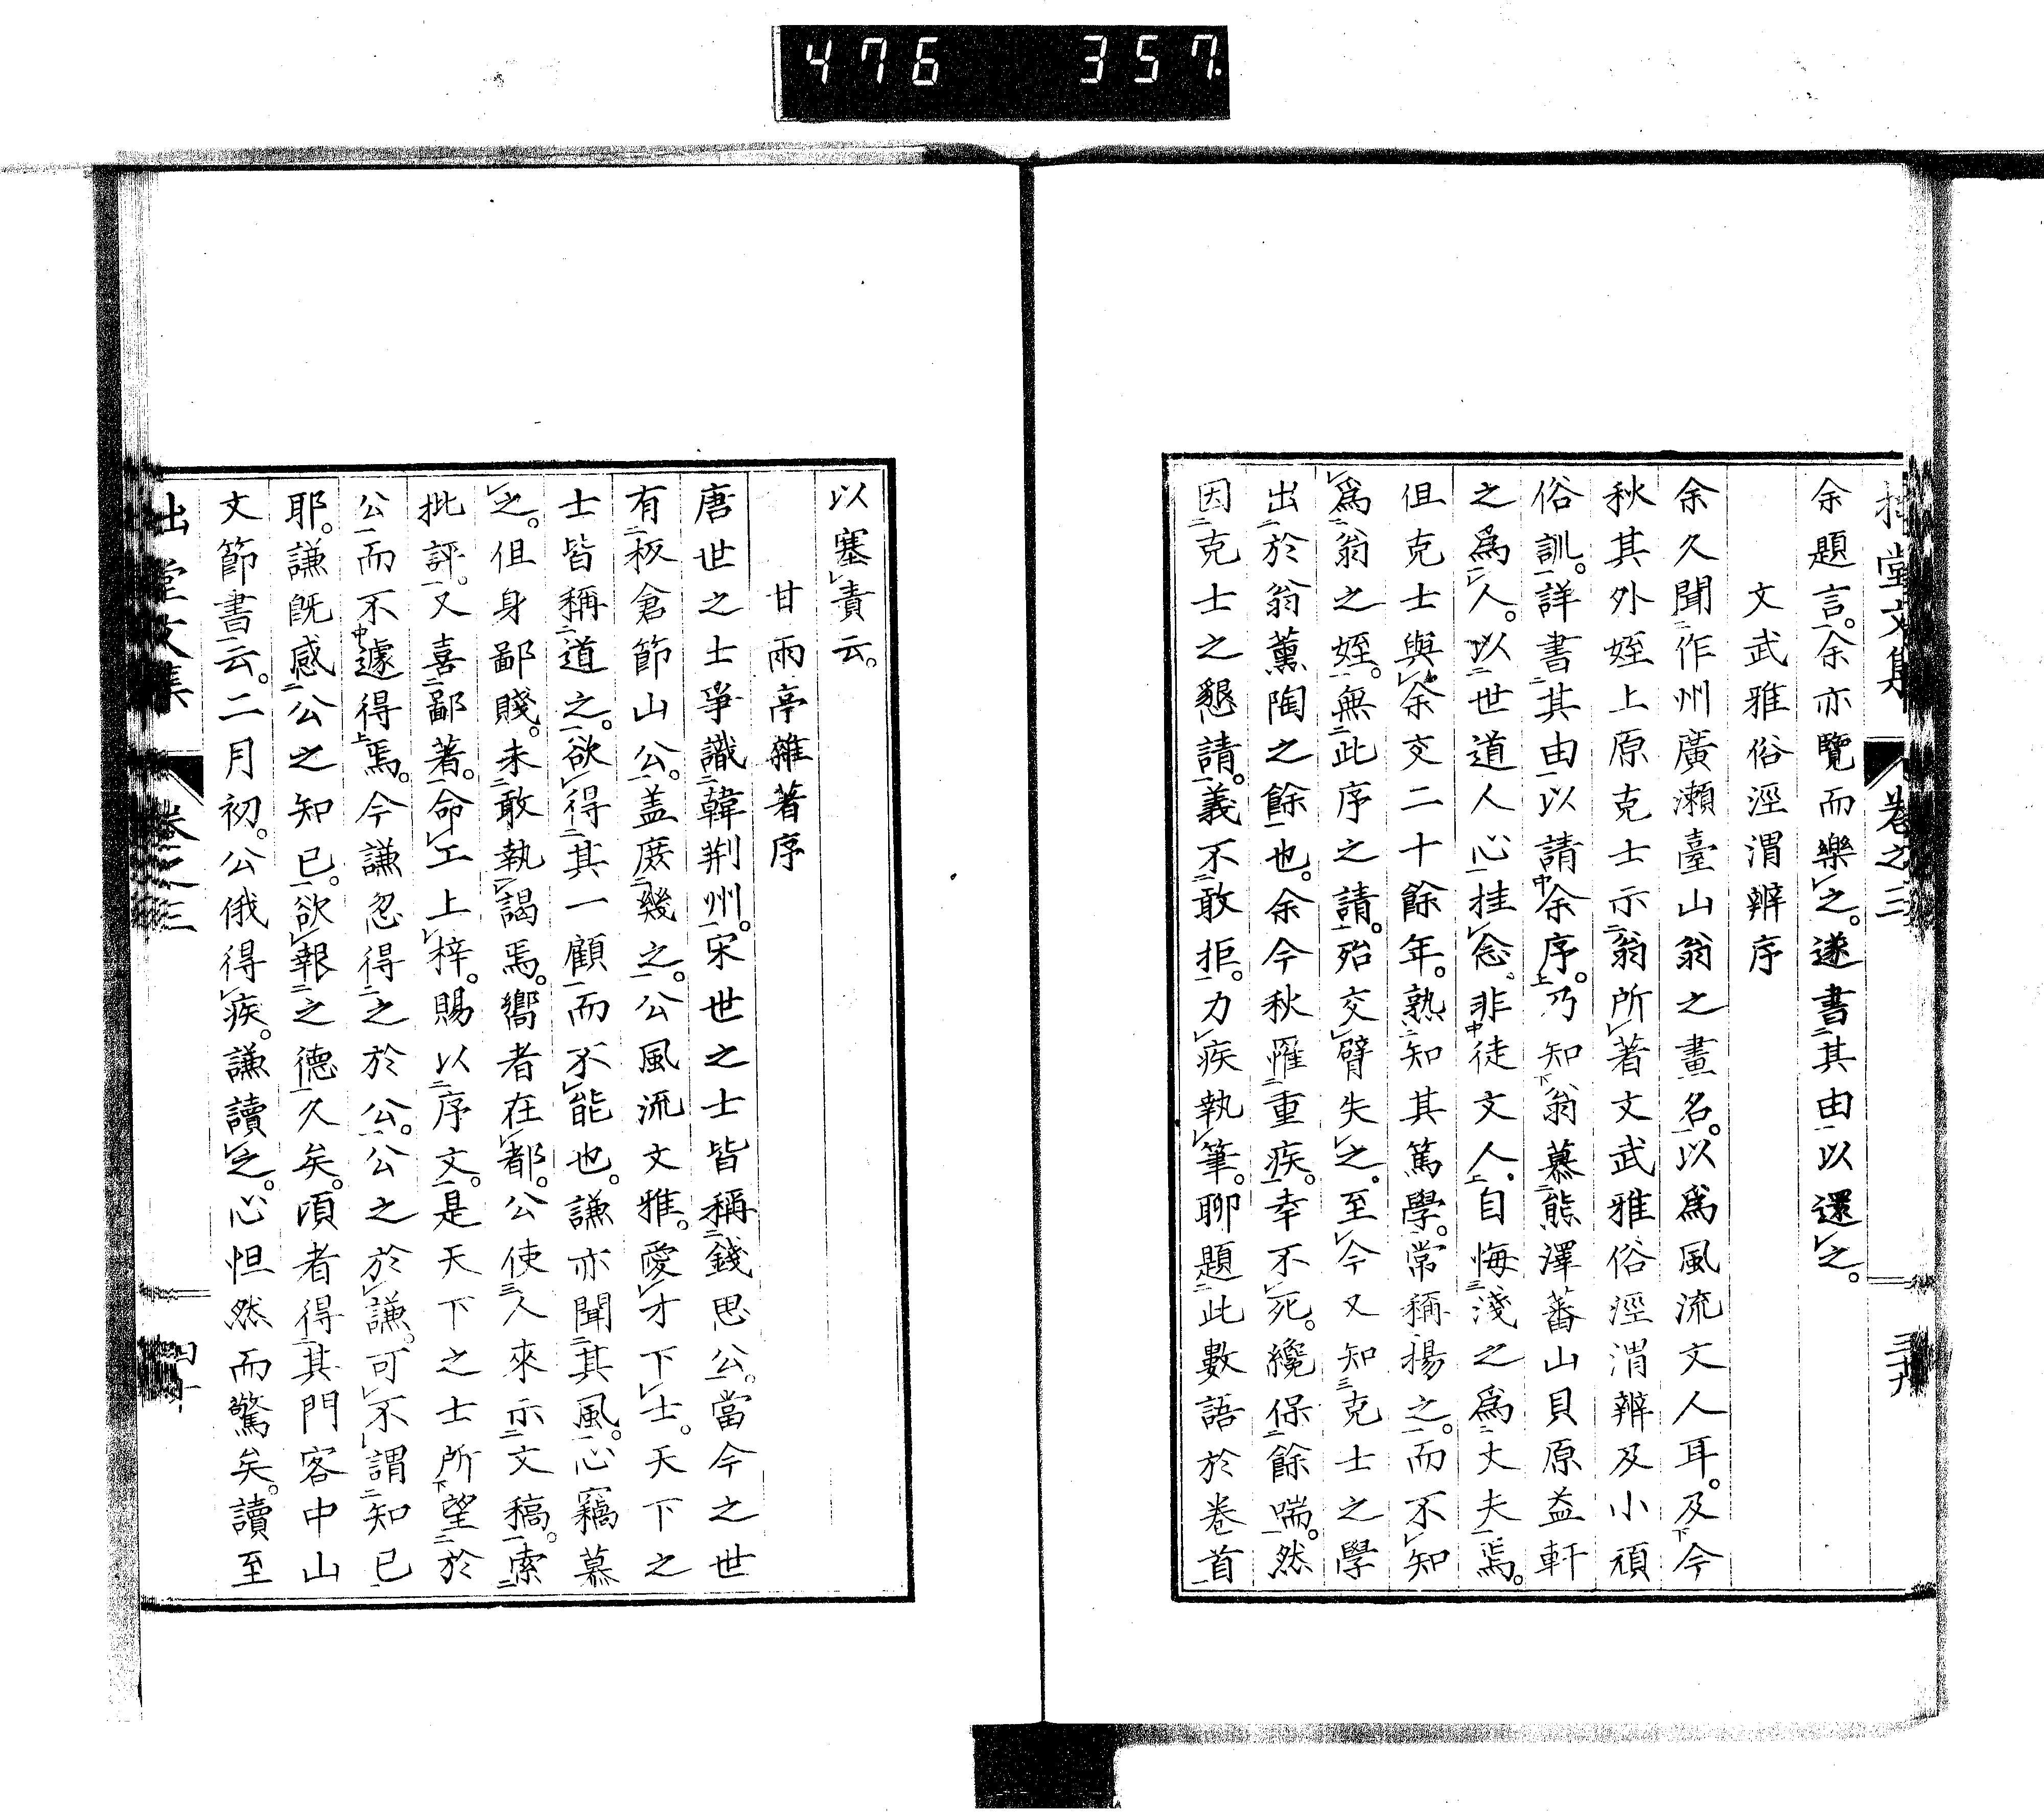 476 357
堂文集 卷之三 三十九
余題言。余亦覽而樂之。遂書其由以還之。
文武雅俗涇渭辨序
余久聞作州廣瀨臺山翁之畫名。以爲風流文人耳。及今
秋其外姪上原克士示翁所著文武雅俗涇渭辨及小頑
俗訓。詳書其由以請余序。乃知翁慕熊澤蕃山貝原益軒
之爲人。以世道人心挂念。非徒文人。自悔淺之爲丈夫焉。
但克士與余交二十餘年。熟知其篤學。常稱揚之。而不知
爲翁之姪。無此序之請。殆交臂失之。至今又知克士之學
出於翁薰陶之餘也。余今秋罹重疾。幸不死。纔保餘喘。然
因克士之懇請。義不敢拒。力疾執筆。聊題此數語於卷首
以塞責云。
甘雨亭雜著序
唐世之士爭識韓荆州。宋世之士皆稱錢思公。當今之世
有板倉節山公。盖庶幾之。公風流文雅。愛才下士。天下之
士皆稱道之。欲得其一顧而不能也。謙亦聞其風。心竊慕
之。但身鄙賤。未敢執謁焉。嚮者在都。公使人來示文稿。索
批評。又喜鄙著。命工上梓。賜以序文。是天下之士所望於
公而不遽得焉。今謙忽得之於公。公之於謙。可不謂知已
耶。謙旣感公之知已。欲報之德久矣。頃者得其門客中山
文節書云。二月初。公俄得疾。謙讀之。心怛然而驚矣。讀至
堂文集 卷之三 四十